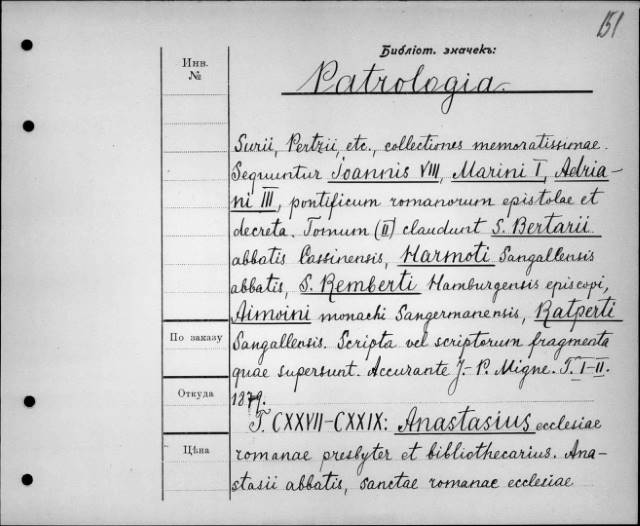 151
Библіот. значекъ:
Инв.
№
Patrologia.
Surii, Pertzii, etc., collectiones memoratissimae.
Sequuntur Joannis VIII, Marini I, Adria-
ni III, pontificum romanorum epistolae et
decreta. Tomum (II) claudunt S. Bertarii
abbatis Cassinensis, Harmoti Sangallensis
abbatis, S. Remberti Hamburgensis episcopi,
Aimoini monachi Sangermanensis, Ratperti
По заказу
Sangallensis. Scripta vel scriptorum fragmenta
quae supersunt. Accurante J.-P. Migne. T. I-II.
Откуда
1879.
T. CXXVII-CXXIX: Anastasius ecclesiae
Цѣна
romanae presbyter et bibliothecarius. Ana-
stasii abbatis, sanctae romanae ecclesiae